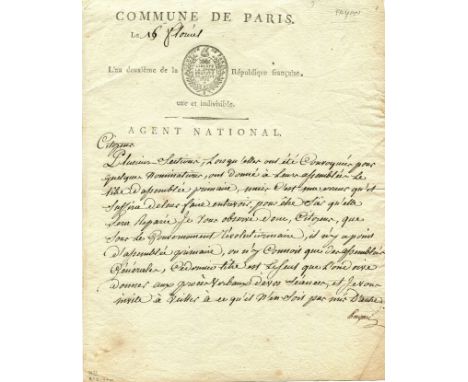 PAYAN
COMMUNE DE PARIS.
Le 16 floréal
L'an deuxième de la République française,
une et indivisible.
AGENT NATIONAL.
Citoyen
Plusieurs Sections, Lorsqu'elles ont été Convoquées pour
quelque nominations, ont donné à leur assemblée le
titre d'assemblée primaire, mais c'est une erreur qu'il
Suffira de leur faire entrevoir, pour être Sûr qu'elle
Sera Reparée Je vous observe donc, Citoyen, que
Sous le Gouvernement Révolutionnaire, il n'y a point
d'assemblée primaire, on n'y Connoit que des assemblées
Générales, Ce dernier titre est le Seul que l'on doive
donner aux procès Verbaux de vos Séances, et Je vous
invite à Veiller à ce qu'il n'en Soit pas mis D'autre